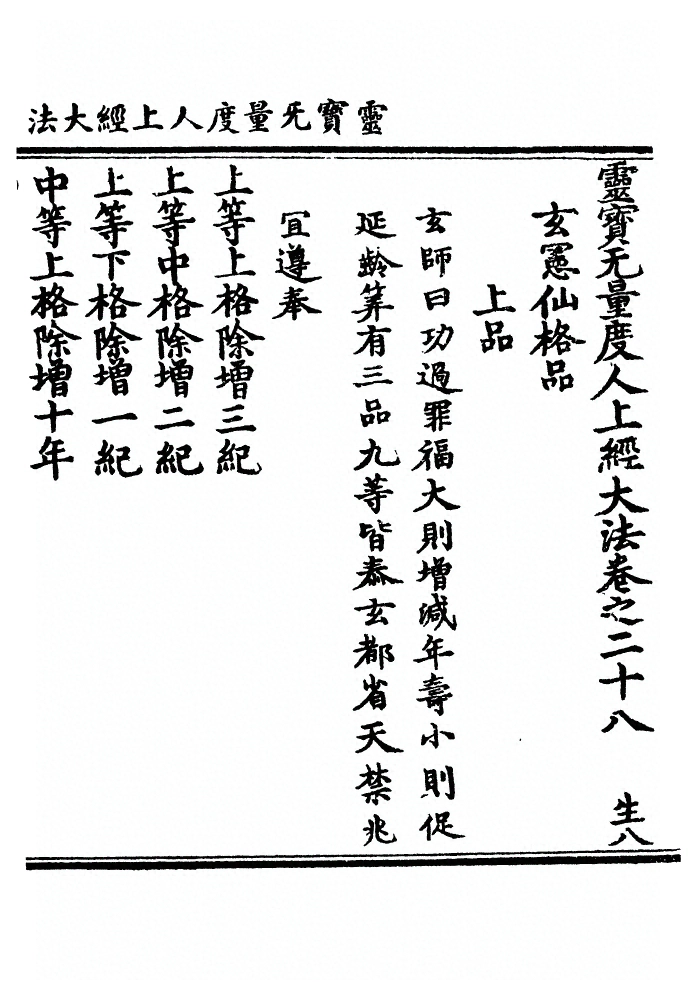 靈寶旡量度人上經大法
靈寶旡量度人上經大法卷之二十八　生八
玄憲仙格品
上品
玄師曰功過罪福大則增減年壽小則促
延齡筭有三品九等皆泰玄都省天禁兆
冝遵奉
上等上格除增三紀
上等中格除增二紀
上等下格除增一紀
中等上格除增十年